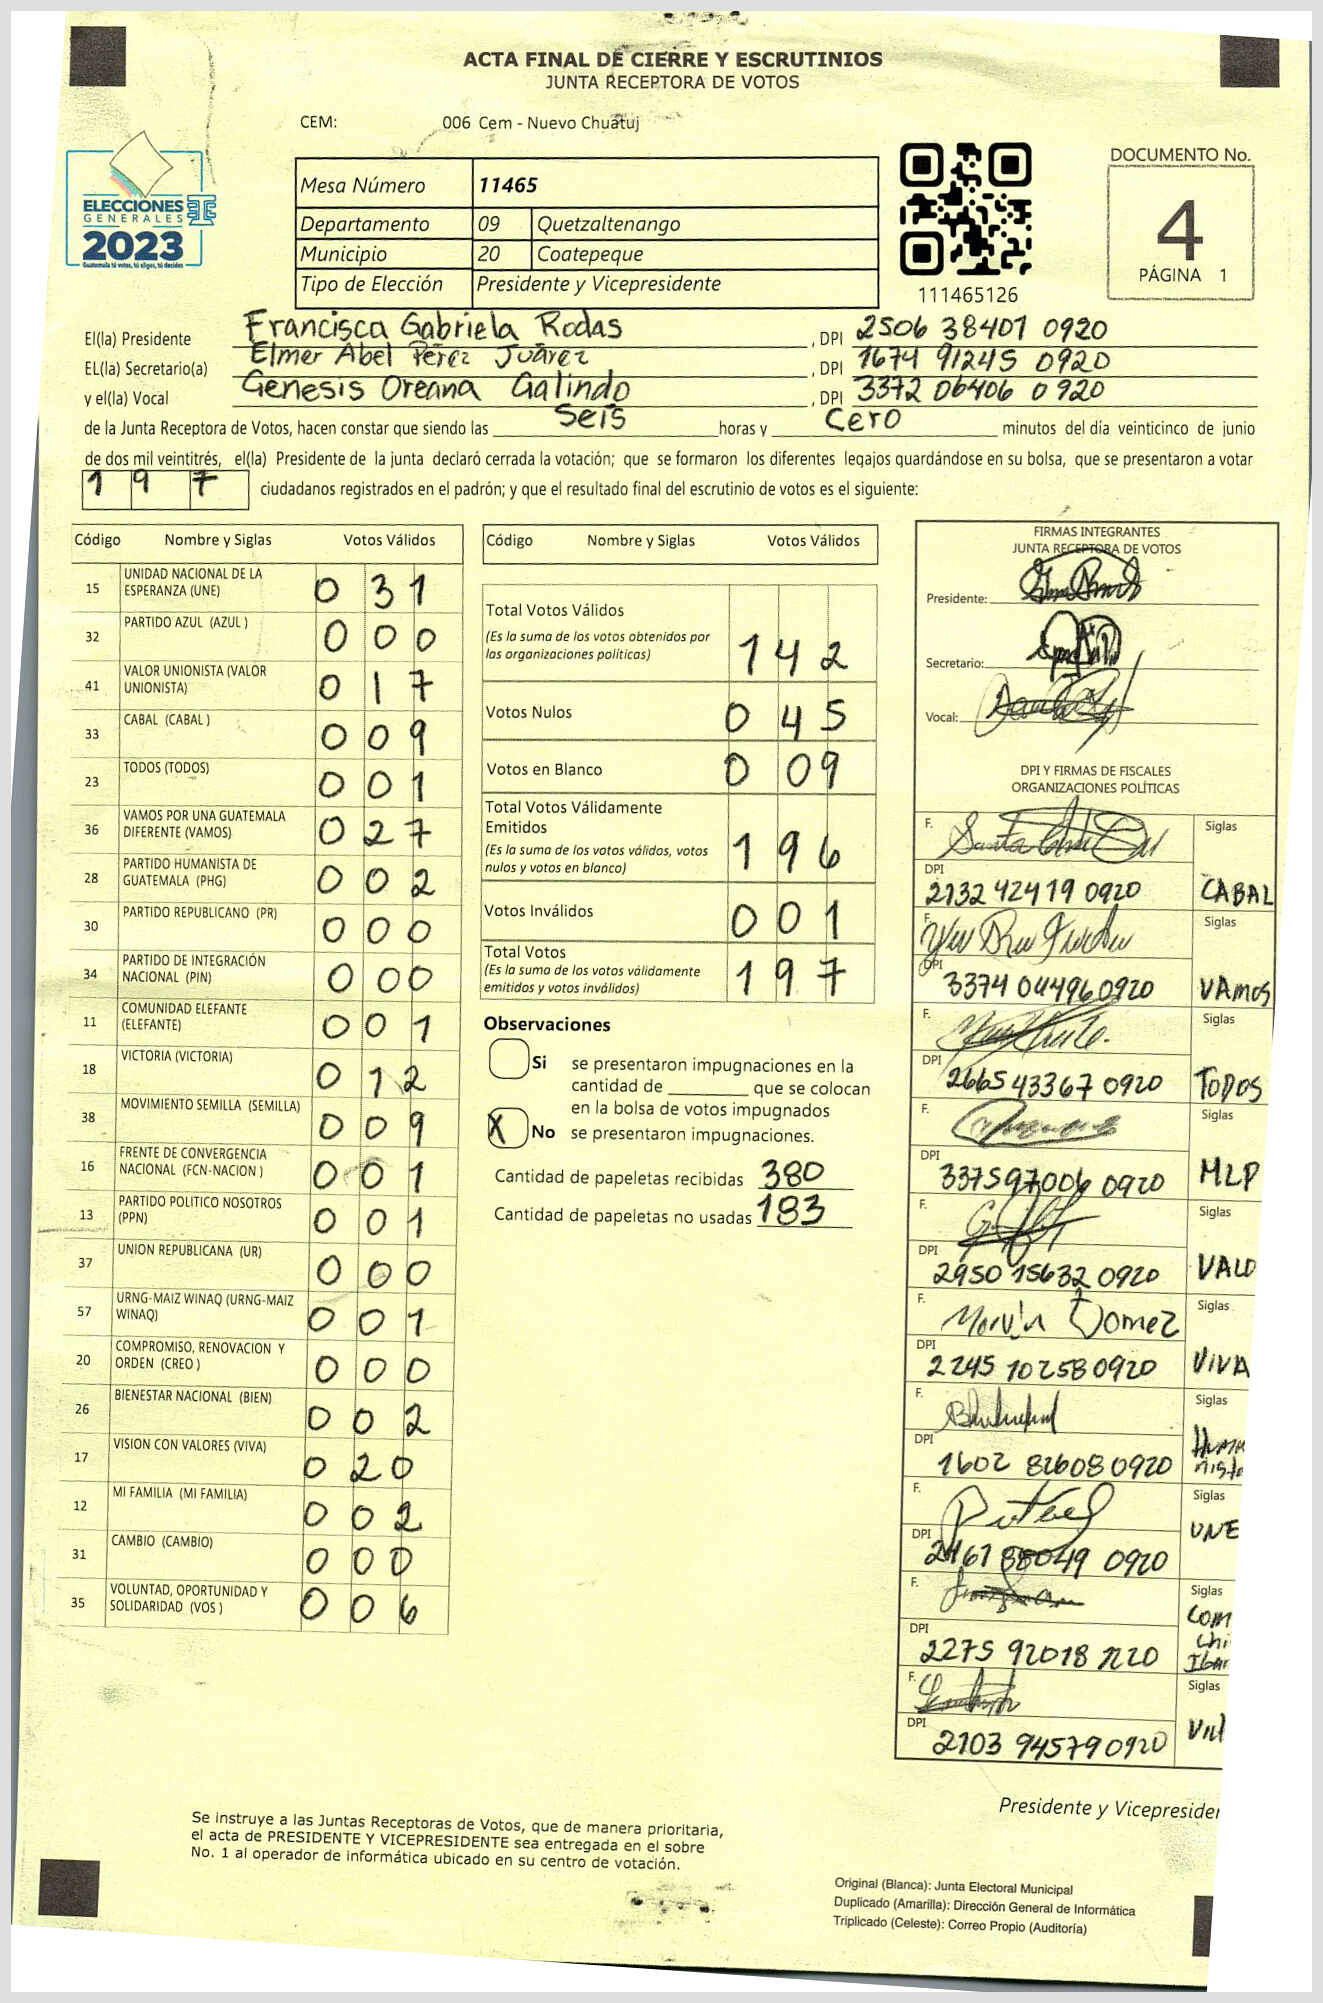 ACTA FINAL DE CIERRE Y ESCRUTINIOS
JUNTA RECEPTORA DE VOTOS
CEM: 006 Cem - Nuevo Chuatuj
ELECCIONES
GENERALES
2023
Guatemala tú votas, tú eliges, tú decides
Mesa Número 11465
Departamento 09 Quetzaltenango
Municipio 20 Coatepeque
Tipo de Elección Presidente y Vicepresidente
111465126
DOCUMENTO No.
4
PÁGINA 1
El(la) Presidente Francisca Gabriela Rodas , DPI 2506 38401 0920
EL(la) Secretario(a) Elmer Abel Pérez Juárez , DPI 1674 91245 0920
y el(la) Vocal Genesis Oreana Galindo , DPI 3372 06406 0920
de la Junta Receptora de Votos, hacen constar que siendo las Seis horas y Cero minutos del día veinticinco de junio
de dos mil veintitrés, el(la) Presidente de la junta declaró cerrada la votación; que se formaron los diferentes legajos guardándose en su bolsa, que se presentaron a votar
197 ciudadanos registrados en el padrón; y que el resultado final del escrutinio de votos es el siguiente:
Código Nombre y Siglas Votos Válidos
15 UNIDAD NACIONAL DE LA ESPERANZA (UNE) 031
32 PARTIDO AZUL (AZUL ) 000
41 VALOR UNIONISTA (VALOR UNIONISTA) 017
33 CABAL (CABAL ) 009
23 TODOS (TODOS) 001
36 VAMOS POR UNA GUATEMALA DIFERENTE (VAMOS) 027
28 PARTIDO HUMANISTA DE GUATEMALA (PHG) 002
30 PARTIDO REPUBLICANO (PR) 000
34 PARTIDO DE INTEGRACIÓN NACIONAL (PIN) 000
11 COMUNIDAD ELEFANTE (ELEFANTE) 001
18 VICTORIA (VICTORIA) 012
38 MOVIMIENTO SEMILLA (SEMILLA) 009
16 FRENTE DE CONVERGENCIA NACIONAL (FCN-NACION ) 001
13 PARTIDO POLITICO NOSOTROS (PPN) 001
37 UNION REPUBLICANA (UR) 000
57 URNG-MAIZ WINAQ (URNG-MAIZ WINAQ) 001
20 COMPROMISO, RENOVACION Y ORDEN (CREO ) 000
26 BIENESTAR NACIONAL (BIEN) 002
17 VISION CON VALORES (VIVA) 020
12 MI FAMILIA (MI FAMILIA) 002
31 CAMBIO (CAMBIO) 000
35 VOLUNTAD, OPORTUNIDAD Y SOLIDARIDAD (VOS ) 006
Código Nombre y Siglas Votos Válidos
Total Votos Válidos
(Es la suma de los votos obtenidos por
las organizaciones políticas) 142
Votos Nulos 045
Votos en Blanco 009
Total Votos Válidamente
Emitidos
(Es la suma de los votos válidos, votos
nulos y votos en blanco) 196
Votos Inválidos 001
Total Votos
(Es la suma de los votos válidamente
emitidos y votos inválidos) 197
Observaciones
Si se presentaron impugnaciones en la
cantidad de ________ que se colocan
en la bolsa de votos impugnados
X No se presentaron impugnaciones.
Cantidad de papeletas recibidas 380
Cantidad de papeletas no usadas 183
FIRMAS INTEGRANTES
JUNTA RECEPTORA DE VOTOS
Presidente:
Secretario:
Vocal:
DPI Y FIRMAS DE FISCALES
ORGANIZACIONES POLÍTICAS
F. Siglas
DPI 2132 42419 0920 CABAL
F. Siglas
DPI 3374 04496 0920 VAMOS
F. Siglas
DPI 2665 43367 0920 TODOS
F. Siglas
DPI 3375 97006 0920 MLP
F. Siglas
DPI 2950 15632 0920 VALO
F. Siglas
DPI 2245 10258 0920 VIVA
F. Siglas
DPI 1602 82608 0920
F. Siglas
DPI 0920 UNE
F. Siglas
DPI 2275 92018 1220
F. Siglas
DPI 2103 94579 0920
Presidente y Vicepresider
Se instruye a las Juntas Receptoras de Votos, que de manera prioritaria,
el acta de PRESIDENTE Y VICEPRESIDENTE sea entregada en el sobre
No. 1 al operador de informática ubicado en su centro de votación.
Original (Blanca): Junta Electoral Municipal
Duplicado (Amarilla): Dirección General de Informática
Triplicado (Celeste): Correo Propio (Auditoría)